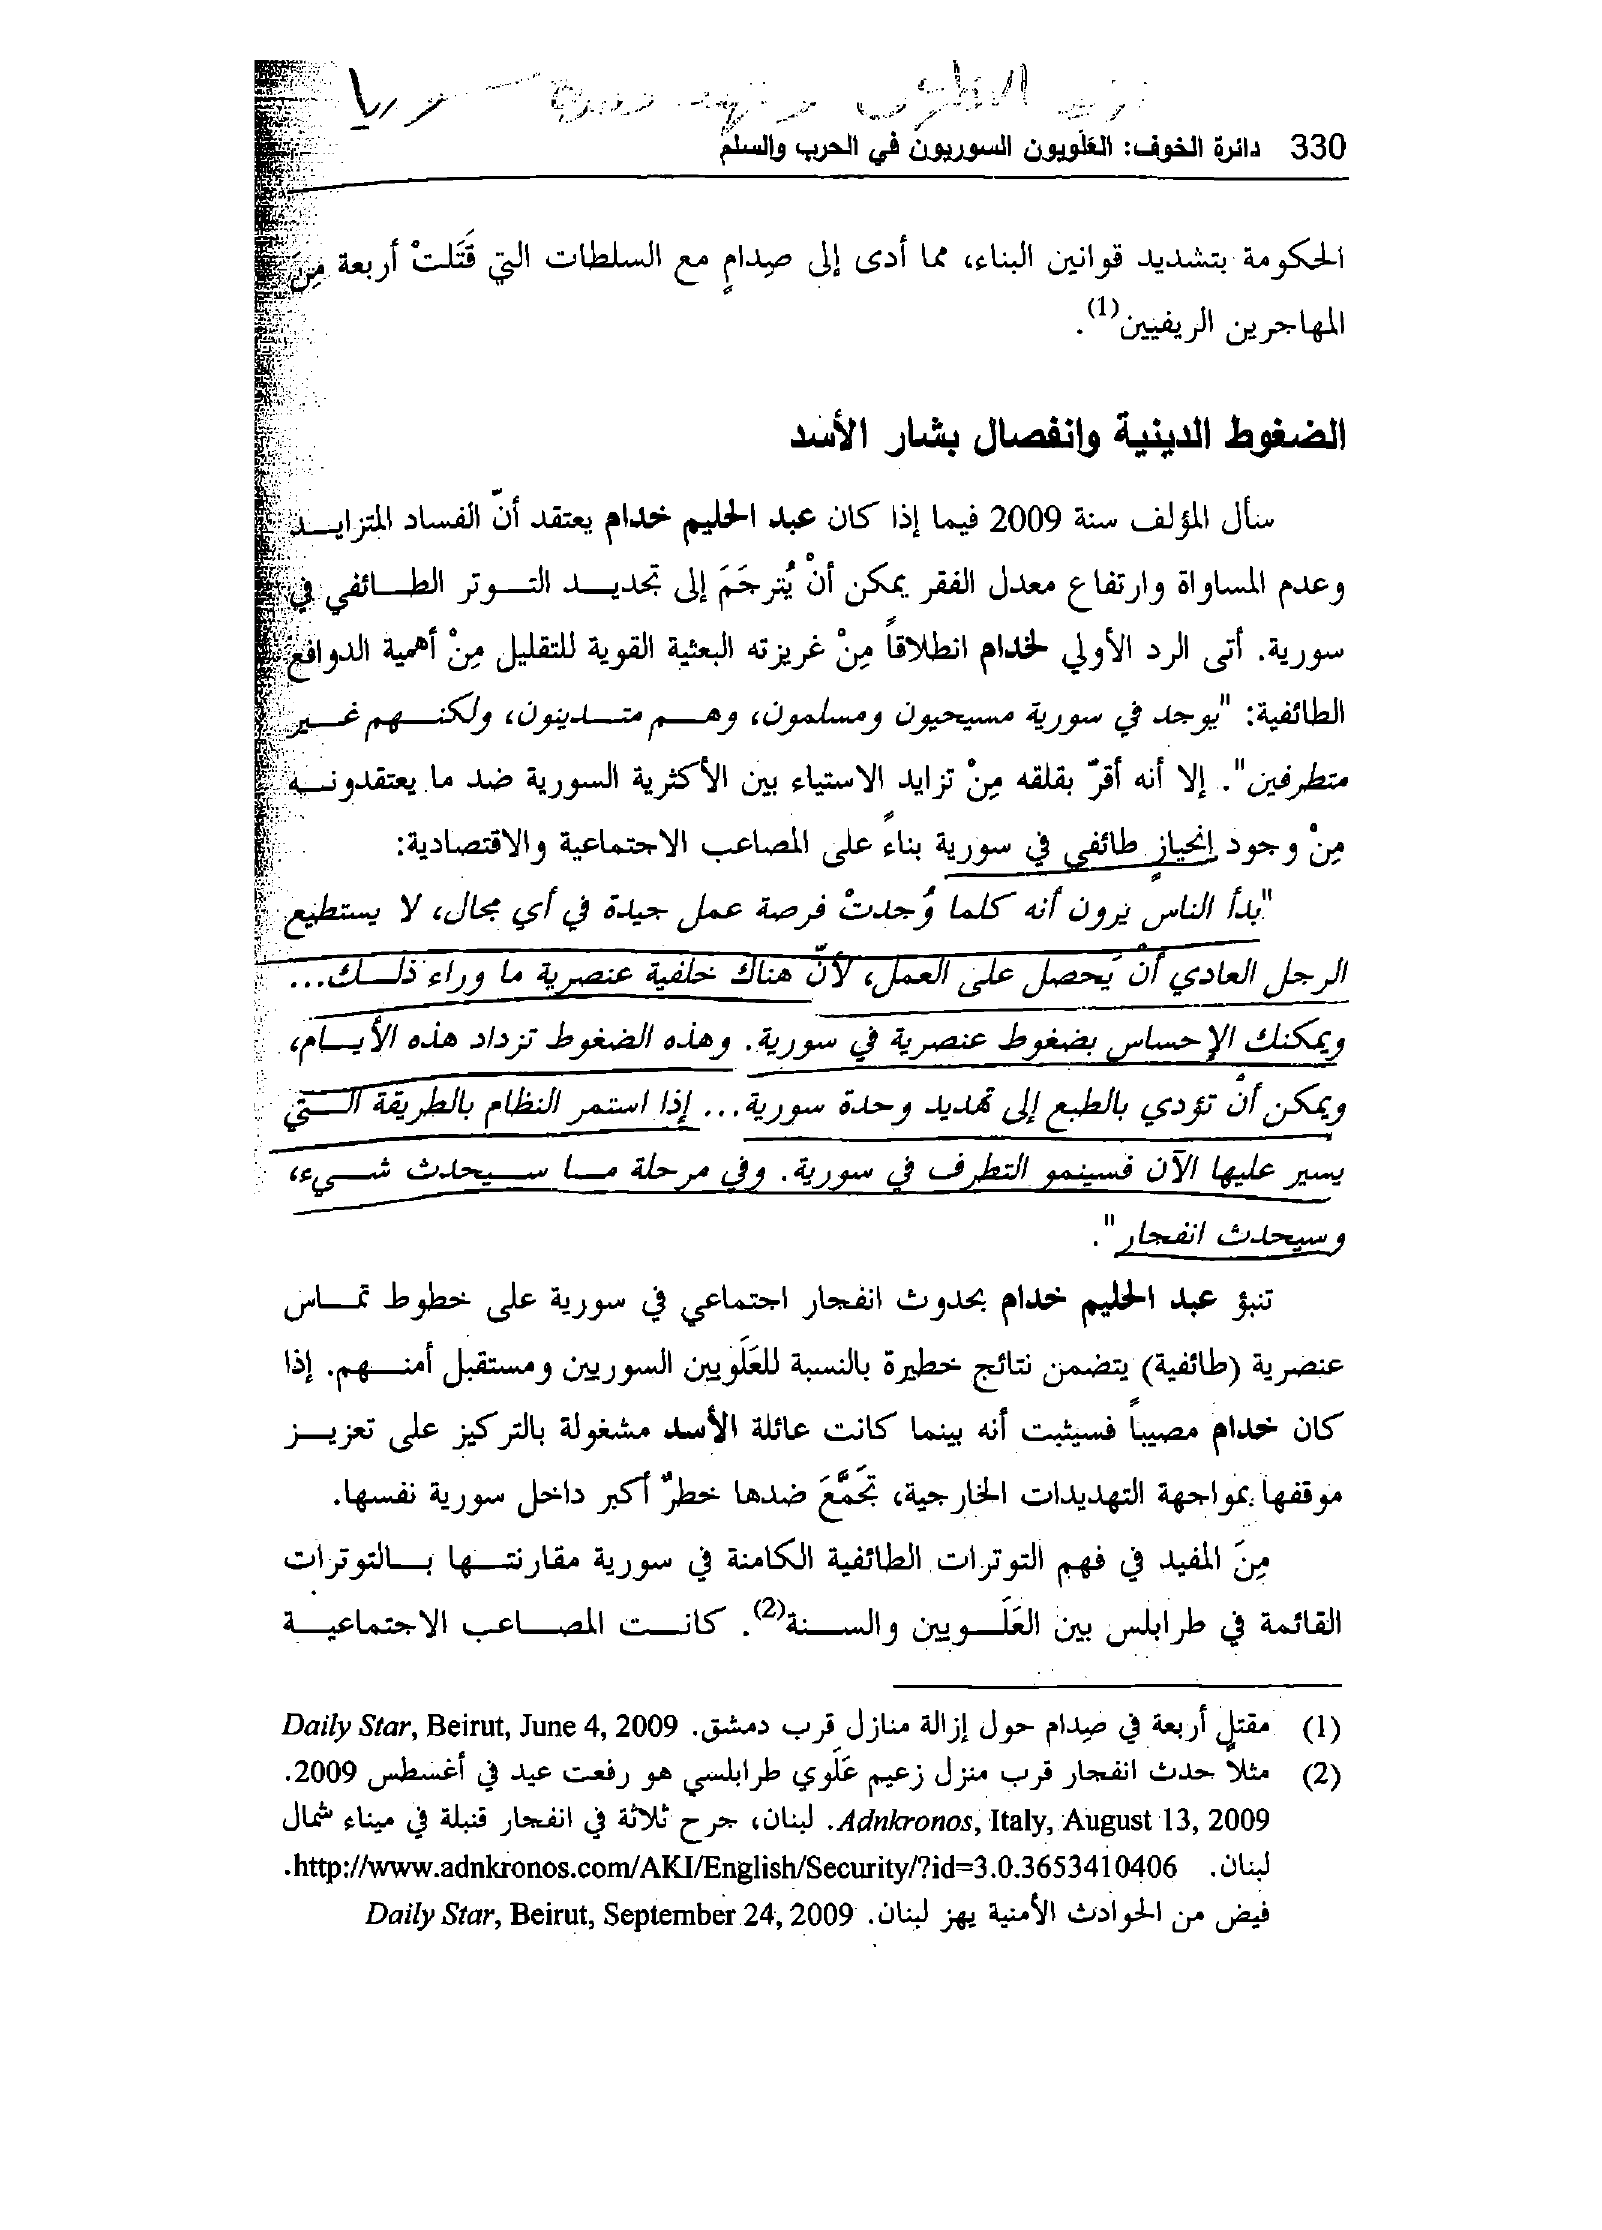 330 دائرة الخوف: العَلَويون السوريون في الحرب والسلم
الحكومة بتشديد قوانين البناء، مما أدى إلى صِدامٍ مع السلطات التي قَتَلتْ أربعة مِنَ
المهاجرين الريفيين(1).
الضغوط الدينية وانفصال بشار الأسد
سأل المؤلف سنة 2009 فيما إذا كان عبد الحليم خدام يعتقد أنّ الفساد المتزايــد
وعدم المساواة وارتفاع معدل الفقر يمكن أنْ يُترجَمَ إلى تجديــد التــوتر الطــائفي في
سورية. أتى الرد الأولي لخدام انطلاقاً مِنْ غريزته البعثية القوية للتقليل مِنْ أهمية الدوافع
الطائفية: "يوجد في سورية مسيحيون ومسلمون، وهــم متــدينون، ولكنــهم غــير
متطرفين". إلا أنه أقرّ بقلقه مِنْ تزايد الاستياء بين الأكثرية السورية ضد ما يعتقدونــه
مِنْ وجود إنحيازٍ طائفي في سورية بناءً على المصاعب الاجتماعية والاقتصادية:
"بدأ الناس يرون أنه كلما وُجدتْ فرصة عمل جيدة في أي مجال، لا يستطيع
الرجل العادي أنْ يَحصل على العمل، لأنّ هناك خلفية عنصرية ما وراء ذلــك...
ويمكنك الإحساس بضغوط عنصرية في سورية. وهذه الضغوط تزداد هذه الأيــام،
ويمكن أنْ تؤدي بالطبع إلى تهديد وحدة سورية... إذا استمر النظام بالطريقة الــتي
يسير عليها الآن فسينمو التطرف في سورية. وفي مرحلة مــا ســيحدث شــيء،
وسيحدث انفجار".
تنبؤ عبد الحليم خدام بحدوث انفجار اجتماعي في سورية على خطوط تمــاس
عنصرية (طائفية) يتضمن نتائج خطيرة بالنسبة للعَلَويين السوريين ومستقبل أمنــهم. إذا
كان خدام مصيباً فسيثبت أنه بينما كانت عائلة الأسد مشغولة بالتركيز على تعزيــز
موقفها بمواجهة التهديدات الخارجية، تَجَمَّعَ ضدها خطرٌ أكبر داخل سورية نفسها.
مِنَ المفيد في فهم التوترات الطائفية الكامنة في سورية مقارنتــها بــالتوترات
القائمة في طرابلس بين العَلَــويين والســنة(2). كانــت المصــاعب الاجتماعيــة
(1) مقتل أربعة في صِدام حول إزالة منازل قرب دمشق. Daily Star, Beirut, June 4, 2009
(2) مثلاً حدث انفجار قرب منزل زعيم عَلَوي طرابلسي هو رفعت عيد في أغسطس 2009.
Adnkronos, Italy, August 13, 2009. لبنان، جرح ثلاثة في انفجار قنبلة في ميناء شمال
لبنان. http://www.adnkronos.com/AKI/English/Security/?id=3.0.3653410406.
فيض من الحوادث الأمنية يهز لبنان. Daily Star, Beirut, September 24, 2009